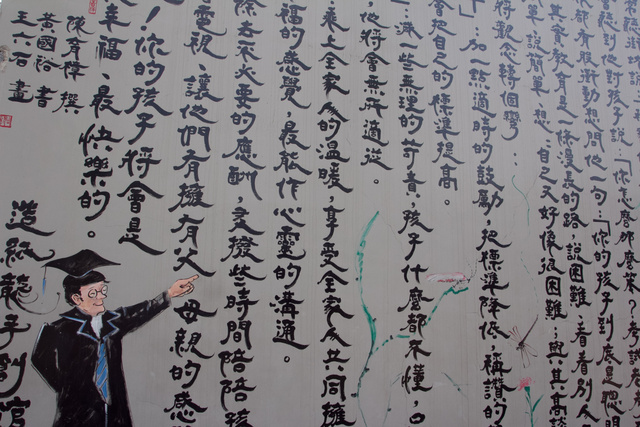 聽到他對孩子說：「你怎麼那麼笨？考試
都有股衝動想問他一句：「你的孩子到底是聰明
其實教育是一條漫長的路，說困難，看看別人
單說簡單，想自己又好像很困難；與其高談
將觀念轉個彎：
下」：加一點適時的鼓勵，把標準降低，稱讚的
會把自己的標準提高。
減一些無理的苛責，孩子什麼都不懂，
他將會無所適從。
乘上全家人的溫暖，享受全家人共同擁
福的感覺，最能作心靈的溝通。
除去不必要的應酬，多撥些時間陪陪孩
電視、讓他們有擁有父母親的感
，你的孩子將會是
幸福、最快樂的。
撰
黃國裕 書
王大石 畫
造紙龍手創館